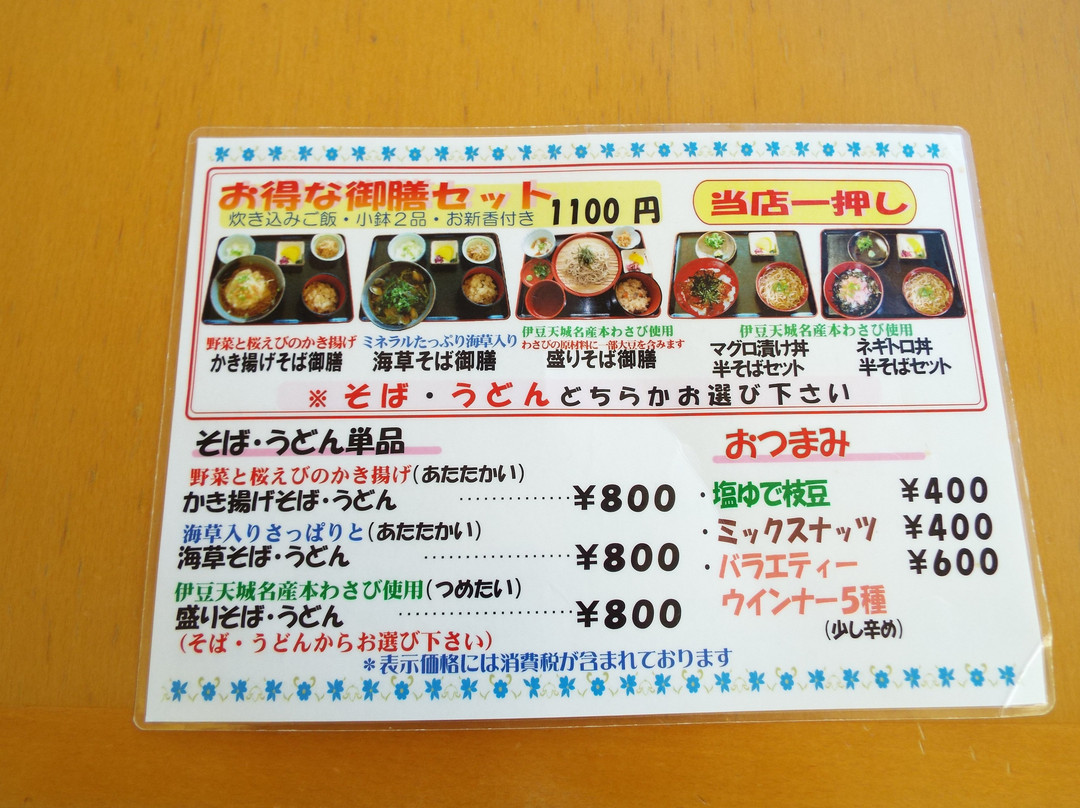 お得な御膳セット 1100 円
炊き込みご飯・小鉢2品・お新香付き
当店一押し
野菜と桜えびのかき揚げ
かき揚げそば御膳
ミネラルたっぷり海草入り
海草そば御膳
伊豆天城名産本わさび使用
わさびの原材料に一部大豆を含みます
盛りそば御膳
伊豆天城名産本わさび使用
マグロ漬け丼
半そばセット
ネギトロ丼
半そばセット
※そば・うどんどちらかお選び下さい
そば・うどん単品
野菜と桜えびのかき揚げ(あたたかい)
かき揚げそば・うどん ············ ¥800
海草入りさっぱりと(あたたかい)
海草そば・うどん ················ ¥800
伊豆天城名産本わさび使用(つめたい)
盛りそば・うどん ················ ¥800
(そば・うどんからお選び下さい)
おつまみ
・塩ゆで枝豆 ¥400
・ミックスナッツ ¥400
・バラエティー ¥600
ウインナー5種
(少し辛め)
*表示価格には消費税が含まれております